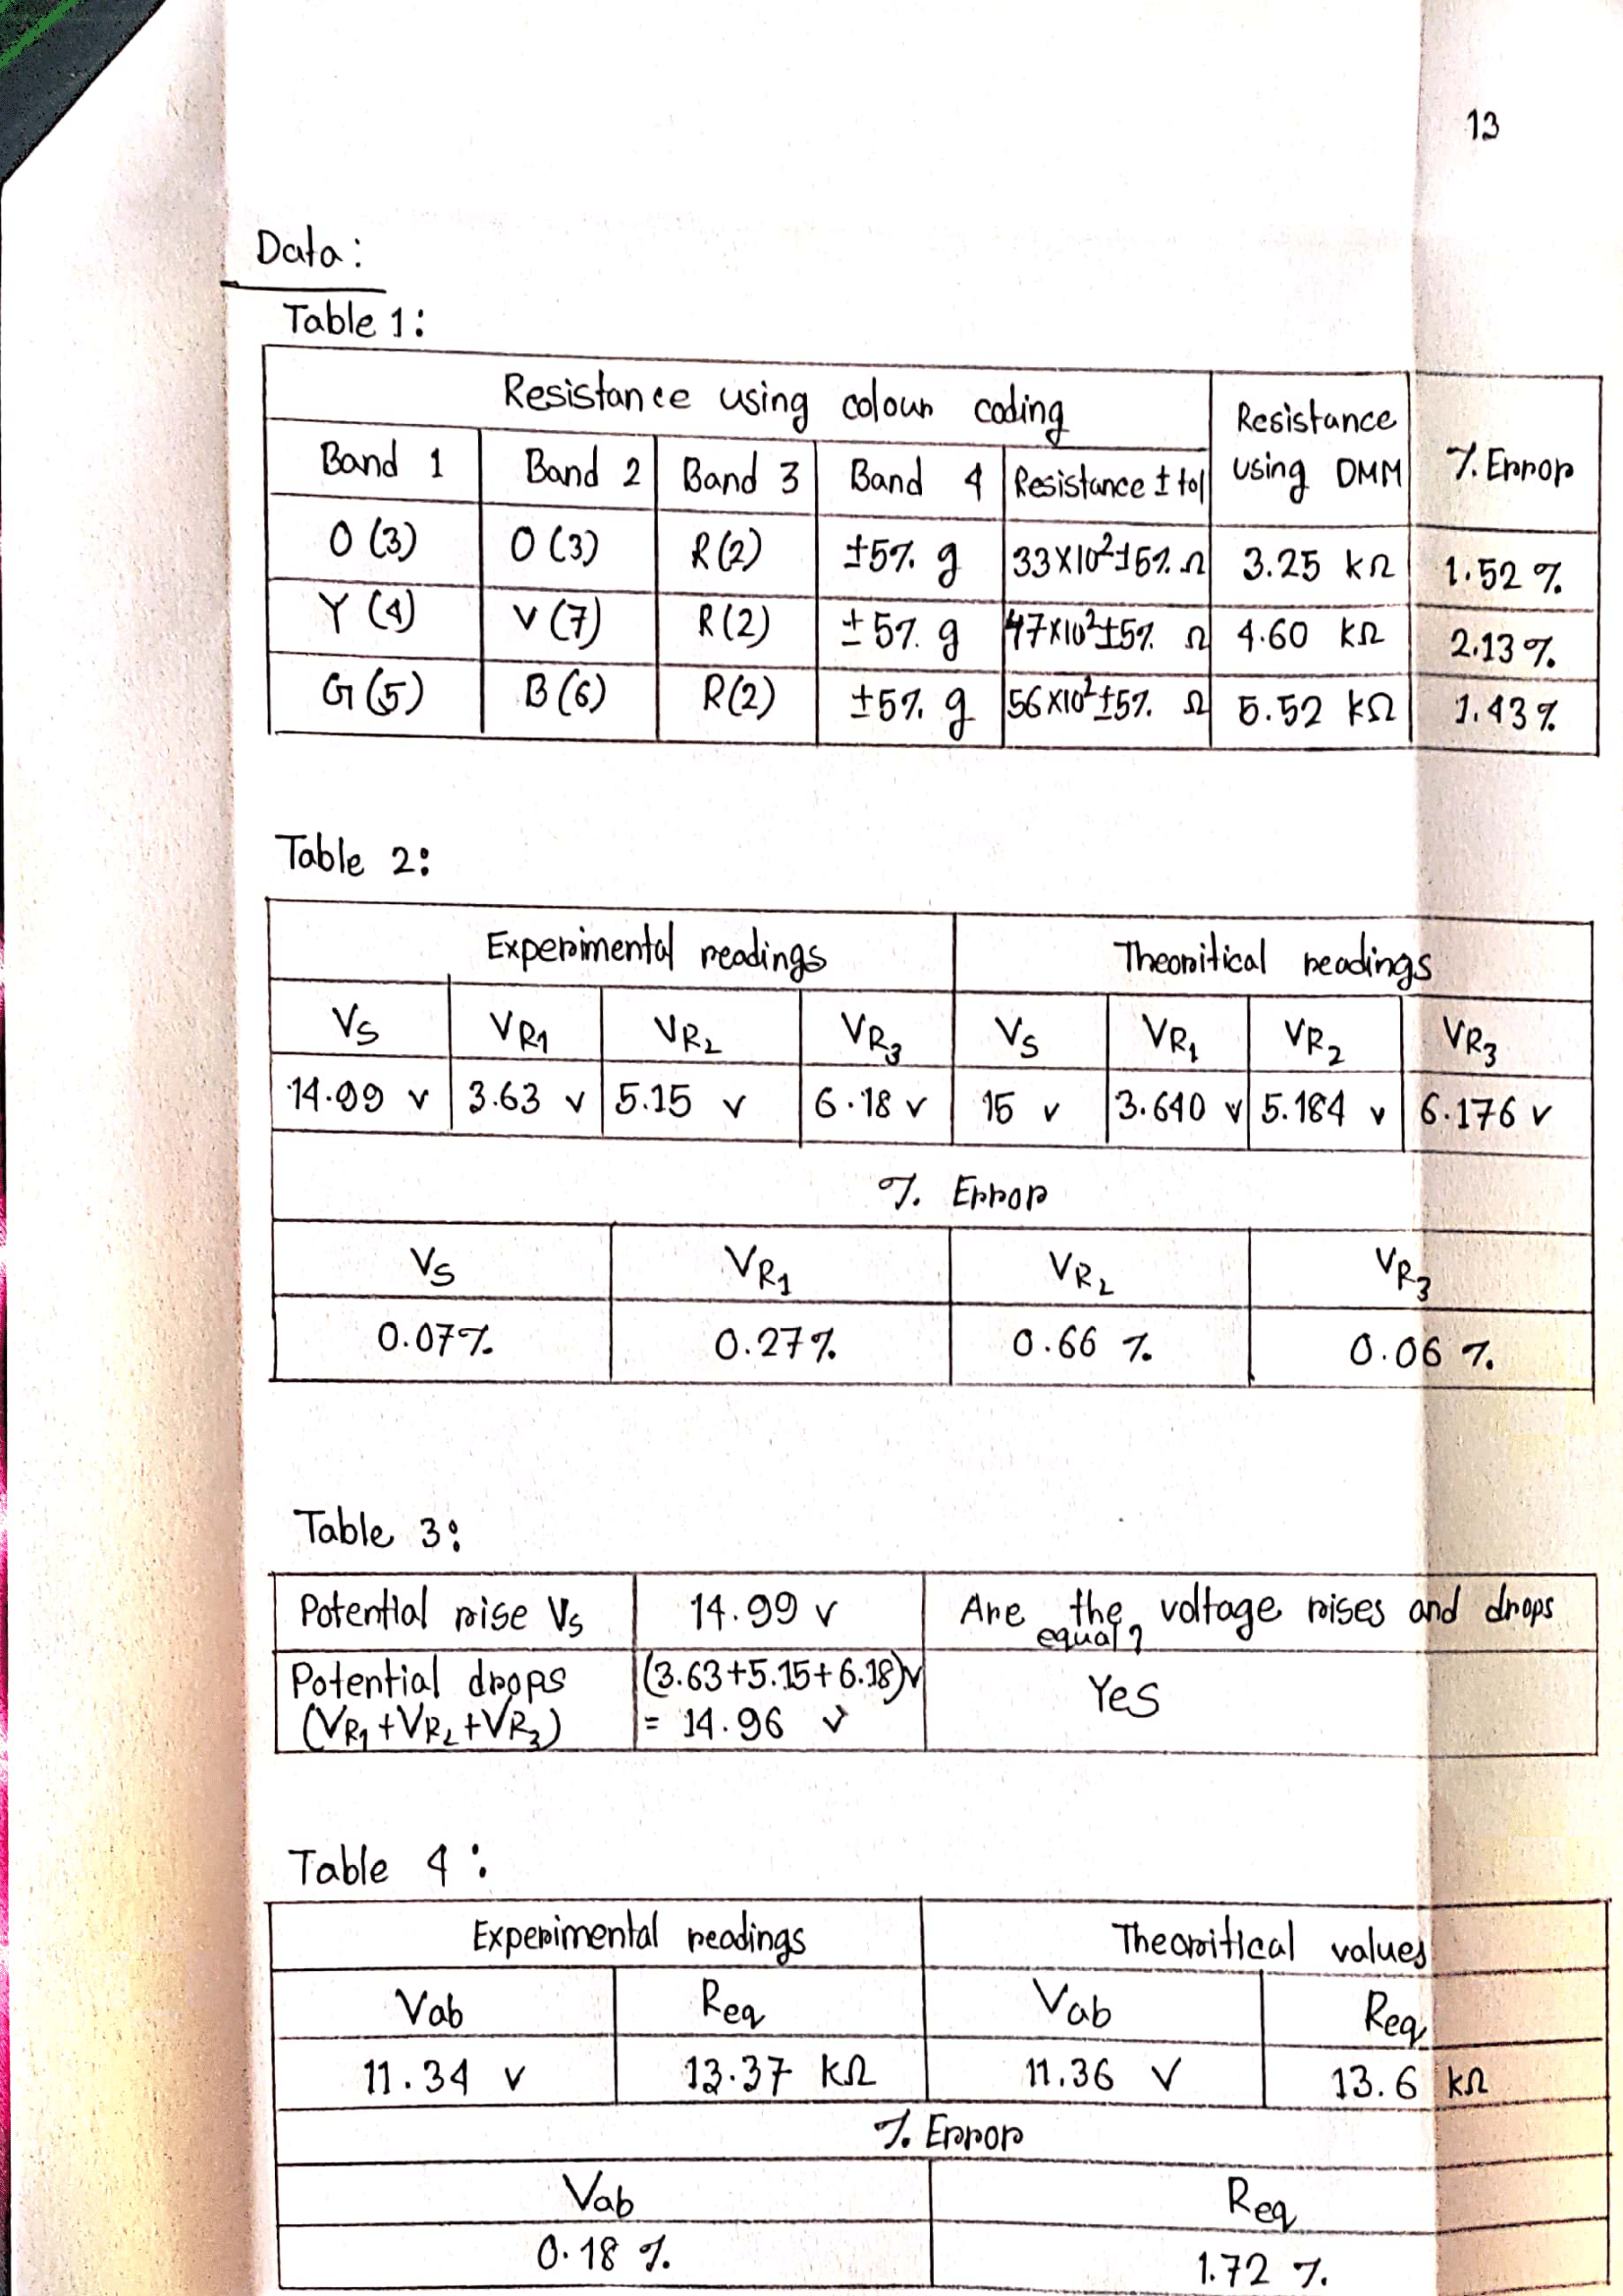 13
Data:
Table 1:
Resistance using colour coding | Resistance using DMM | % Error
Band 1 | Band 2 | Band 3 | Band 4 | Resistance ± tol
O (3) | O (3) | R (2) | ±5% g | 33×10²±5% Ω | 3.25 kΩ | 1.52 %
Y (4) | V (7) | R (2) | ±5% g | 47×10²±5% Ω | 4.60 kΩ | 2.13 %
G (5) | B (6) | R (2) | ±5% g | 56×10²±5% Ω | 5.52 kΩ | 1.43 %
Table 2:
Experimental readings | Theoritical readings
Vs | VR1 | VR2 | VR3 | Vs | VR1 | VR2 | VR3
14.99 v | 3.63 v | 5.15 v | 6.18 v | 15 v | 3.640 v | 5.184 v | 6.176 v
% Error
Vs | VR1 | VR2 | VR3
0.07% | 0.27% | 0.66 % | 0.06 %
Table 3:
Potential rise Vs | 14.99 v | Are the voltage rises and drops equal?
Potential drops (VR1+VR2+VR3) | (3.63+5.15+6.18)v = 14.96 v | Yes
Table 4:
Experimental readings | Theoritical values
Vab | Req | Vab | Req
11.34 v | 13.37 kΩ | 11.36 V | 13.6 kΩ
% Error
Vab | Req
0.18 % | 1.72 %